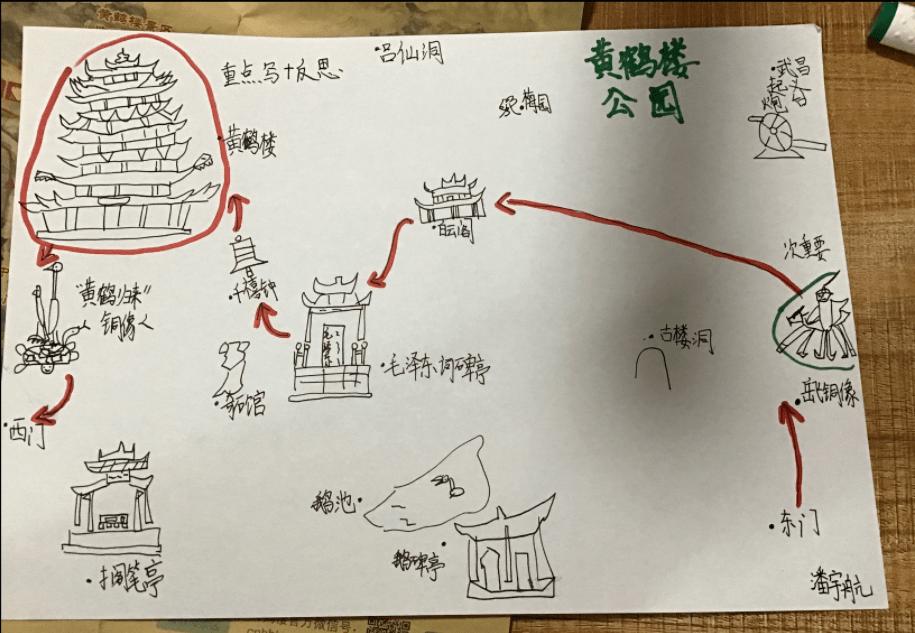 重点写+反思
吕仙洞
黄鹤楼
公园
梅园
武昌
起义
炮
黄鹤楼
白云阁
次重要
千禧钟
"黄鹤归来"
铜像
毛泽东词碑亭
古楼洞
岳飞铜像
奇石馆
西门
鹅池
鹅碑亭
东门
搁笔亭
潘宇航